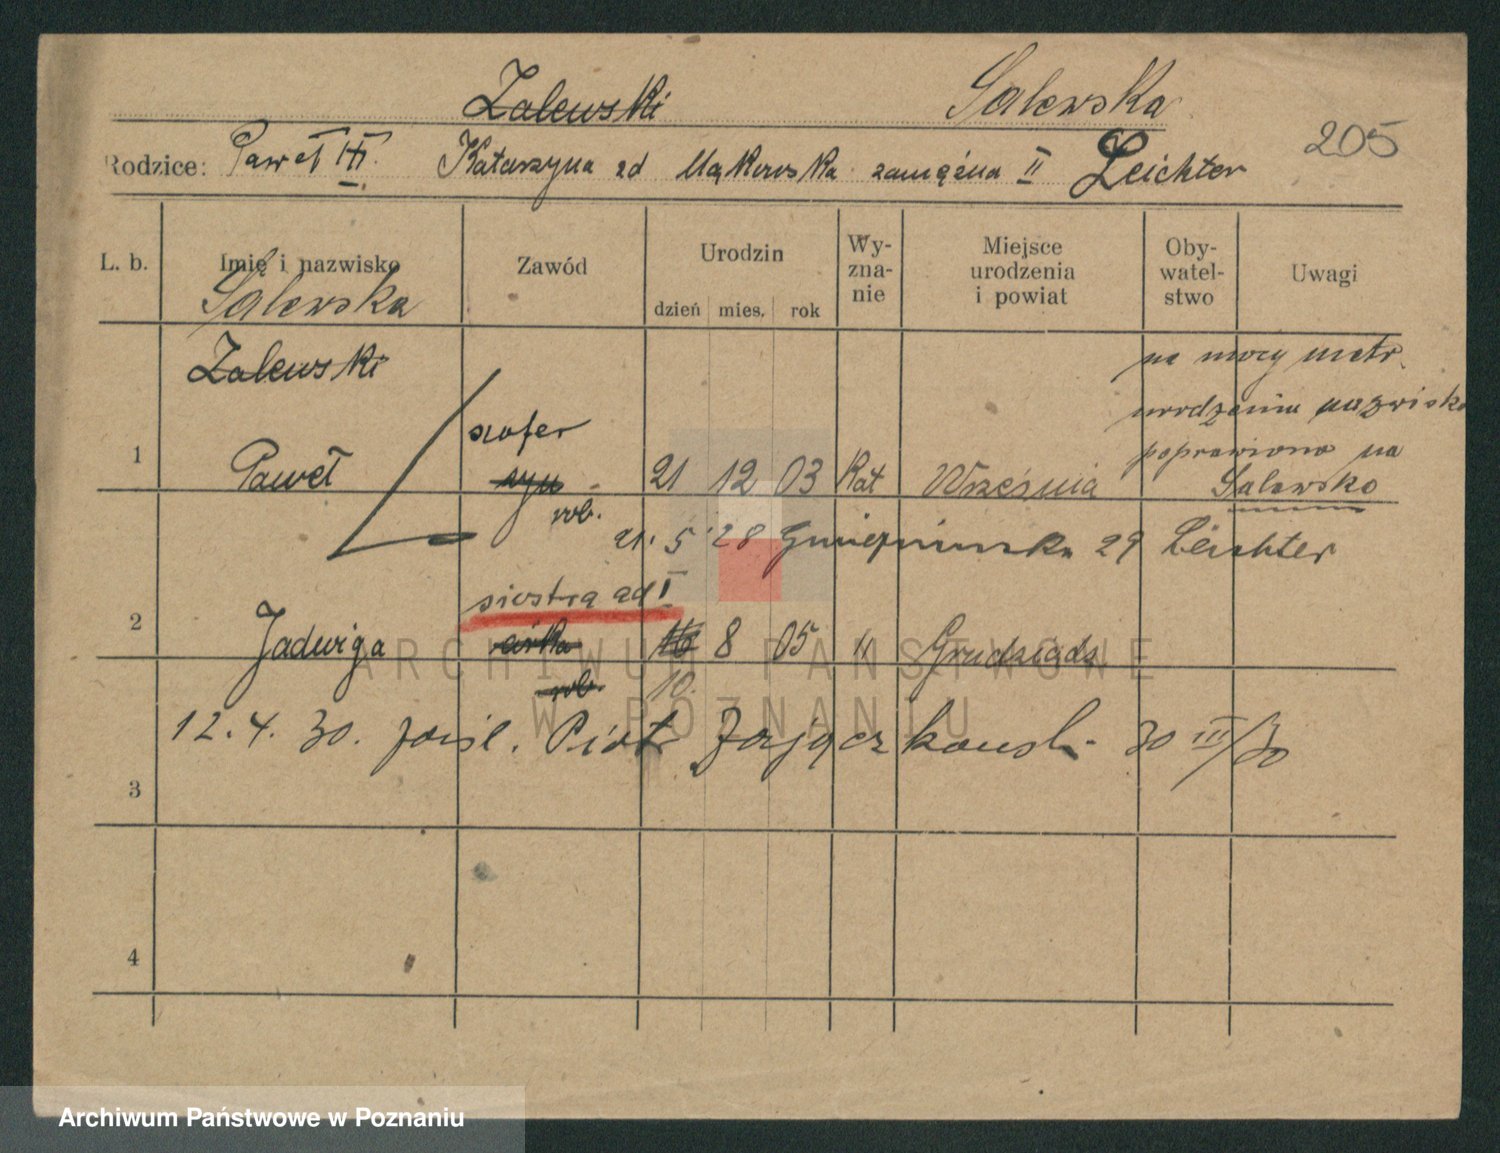 Zalewski Salewska
205
Rodzice: Paweł III. Katarzyna zd Mąkowska zamężna II Leichter
L. b. Imię i nazwisko Zawód Urodzin dzień mies. rok Wy-zna-nie Miejsce urodzenia i powiat Oby-watel-stwo Uwagi
Salewska
Zalewski
na mocy metr.
urodzenia nazwisko
poprawiono na
Salewsko
szofer
1 Paweł syn 21 12 03 Kat Września
rob.
21. 5 28 Gnieźnieńska 29 Leichter
siostra ad I
2 Jadwiga córka 16 8 05 " Grudziądz
rob. 10.
12. 4. 30. Piotr 30 III/30
3
4
ARCHIWUM PAŃSTWOWE
W POZNANIU
Archiwum Państwowe w Poznaniu